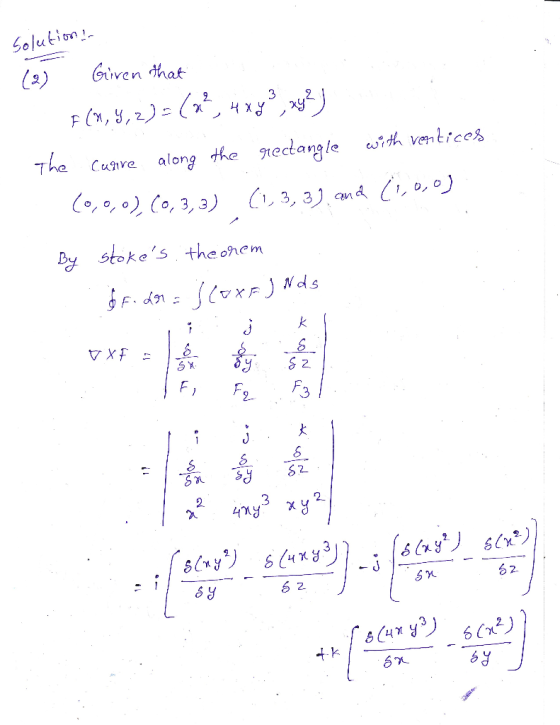 Solution:-
(2) Given that
F(x, y, z) = (x², 4xy³, xy²)
The curve along the rectangle with vertices
(0,0,0), (0,3,3), (1,3,3) and (1,0,0)
By stoke's theorem
∮F. dr = ∫(∇×F) N ds
∇×F = | i j k |
| δ/δx δ/δy δ/δz |
| F₁ F₂ F₃ |
= | i j k |
| δ/δx δ/δy δ/δz |
| x² 4xy³ xy² |
= i [δ(xy²)/δy - δ(4xy³)/δz] - j [δ(xy²)/δx - δ(x²)/δz]
+k [δ(4xy³)/δx - δ(x²)/δy]